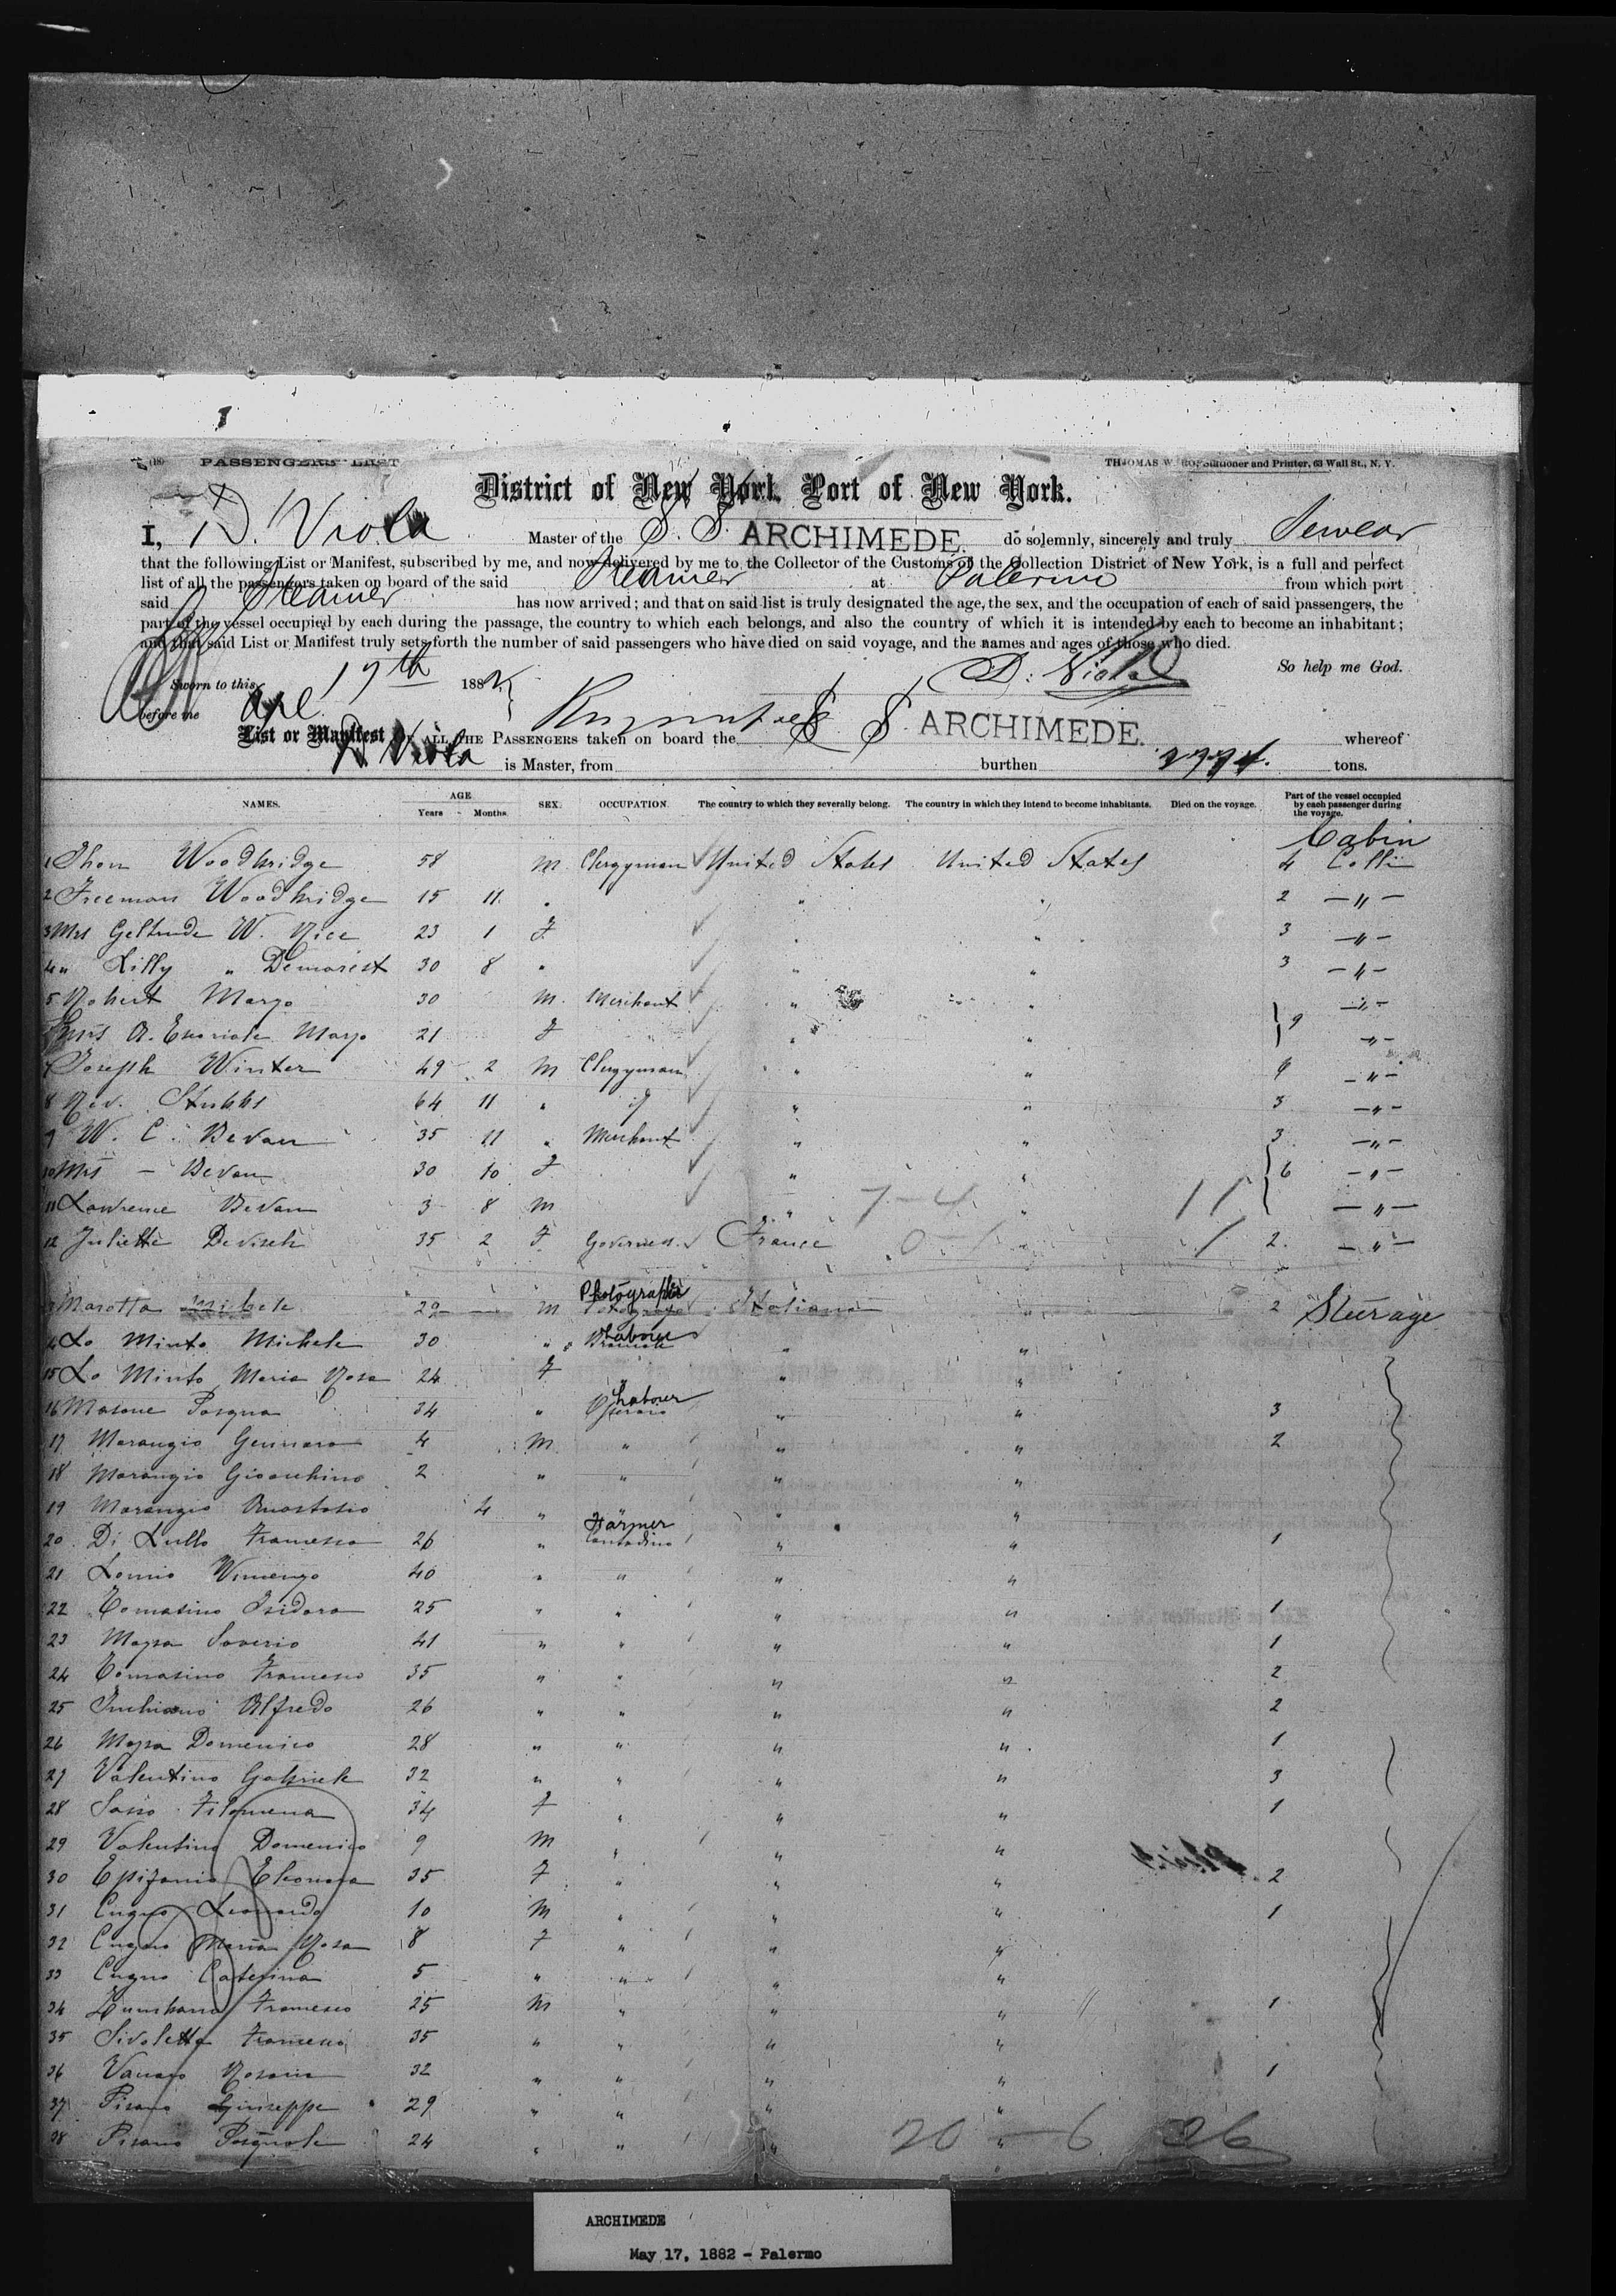 PASSENGERS' LIST
THOMAS W. Stationer and Printer, 63 Wall St., N. Y.
District of New York, Port of New York.
I, D. Viola Master of the S. S. ARCHIMEDE. do solemnly, sincerely and truly Swear
that the following List or Manifest, subscribed by me, and now delivered by me to the Collector of the Customs of the Collection District of New York, is a full and perfect
list of all the passengers taken on board of the said Steamer at Palermo from which port
said Steamer has now arrived; and that on said list is truly designated the age, the sex, and the occupation of each of said passengers, the
part of the vessel occupied by each during the passage, the country to which each belongs, and also the country of which it is intended by each to become an inhabitant;
and that said List or Manifest truly sets forth the number of said passengers who have died on said voyage, and the names and ages of those who died.
So help me God.
Sworn to this 17th 1882 D. Viola
before me
List or Manifest OF ALL THE PASSENGERS taken on board the S S ARCHIMEDE. whereof
D. Viola is Master, from burthen tons.
NAMES. AGE Years Months SEX. OCCUPATION. The country to which they severally belong. The country in which they intend to become inhabitants. Died on the voyage. Part of the vessel occupied by each passenger during the voyage.
Cabin
1 Jhon Woodbridge 58 M Clergyman United States United States 4 Colli
2 Freeman Woodbridge 15 11 " " " 2 — " —
3 Mrs Geltrude W. Rice 23 1 F " " 3 — " —
4 " Lilly " Demarest 30 8 " " " 3 — " —
5 Robert Margo 30 M. Merchant " " — " —
Mrs A. Margo 21 F " " 9 — " —
7 Joseph Winter 49 2 M Clergyman " " 4 — " —
8 Rev. Stubbs 64 11 " " " " 3 — " —
9 W. C. Bevan 35 11 " Merchant " " 3 — " —
10 Mrs — Bevan 30 10 F " " 6 — " —
11 Lawrence Bevan 3 8 M " 7-4 " 11 — " —
12 Juliette 35 2 F Governess France 0-1 " 1 2 — " —
13 Marotta Michele 29 — M Photographer Italiana " 2 Steerage
14 Lo Minto Michele 30 " Labour " "
15 Lo Minto Maria Rosa 24 F " " "
16 Masone Pasqua 34 " Labour " " 3
17 Marangio Gennaro 4 M " " " 2
18 Marangio Gioacchino 2 " " " "
19 Marangio Anastasio 4 " " " "
20 Di Lullo Francesco 26 " Farmer Contadino " " 1
21 40 " " " "
22 Tomasino Isidoro 25 " " " " 1
23 Saverio 41 " " " " 1
24 Tomasino Francesco 35 " " " " 2
25 Alfredo 26 " " " " 2
26 Domenico 28 " " " " 1
27 Valentino Gabriele 32 " " " " 3
28 Sasso Filomena 34 F " " " 1
29 Valentino Domenico 9 M " " "
30 Epifanio Eleonora 35 F " " " 2
31 Cugno Leonardo 10 M " " " 1
32 Cugno Maria Rosa 8 F " " "
33 Cugno Caterina 5 " " " "
34 Francesco 25 M " " " 1
35 Sivoletta Francesco 35 " " " "
36 32 " " " " 1
37 Pisano Giuseppe 29 " " " "
38 Pisano Pasquale 24 " " " "
20 - 6 26
ARCHIMEDE
May 17, 1882 - Palermo